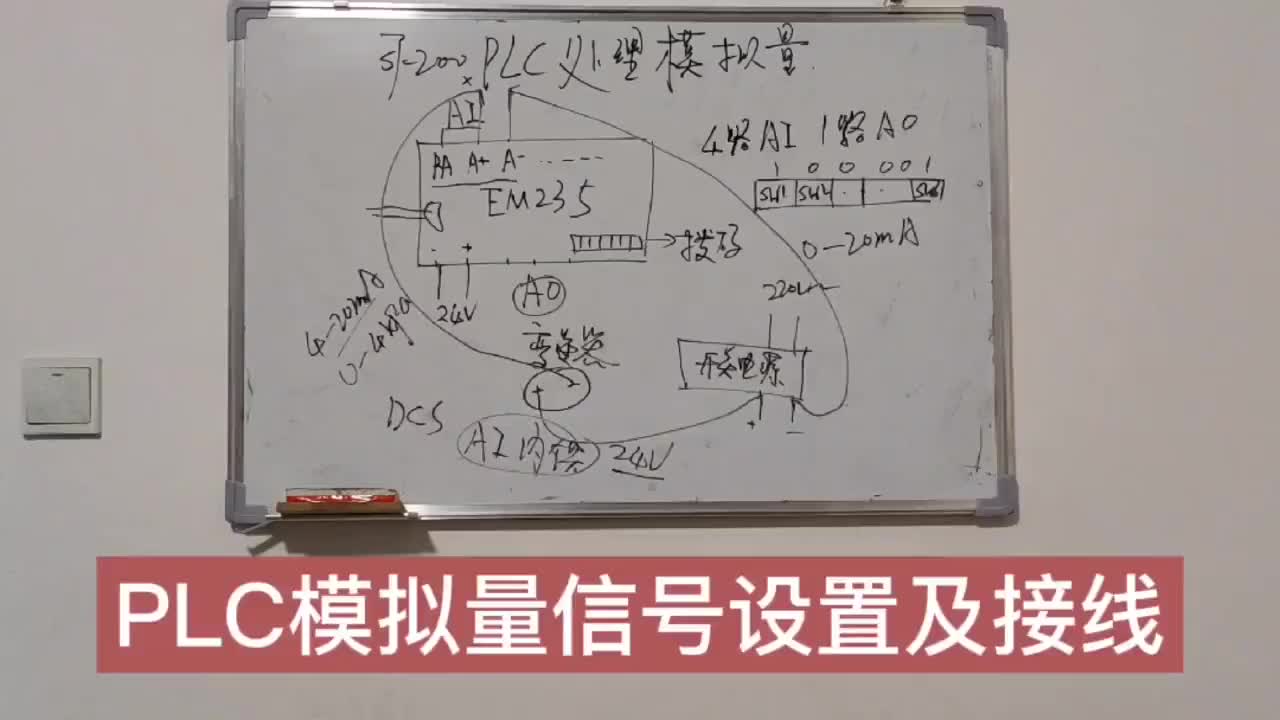 S7-200 PLC处理模拟量
AI
RA A+ A- ------
EM235
- +
24V
AO
拨码
4路AI 1路AO
1 0 0 0 0 1
SW1 SW2 · · SW6
0-20mA
4-20mA
0-4kPa
变送器
+ -
220V~
开关电源
+ -
DCS
AI内供 24V
PLC模拟量信号设置及接线